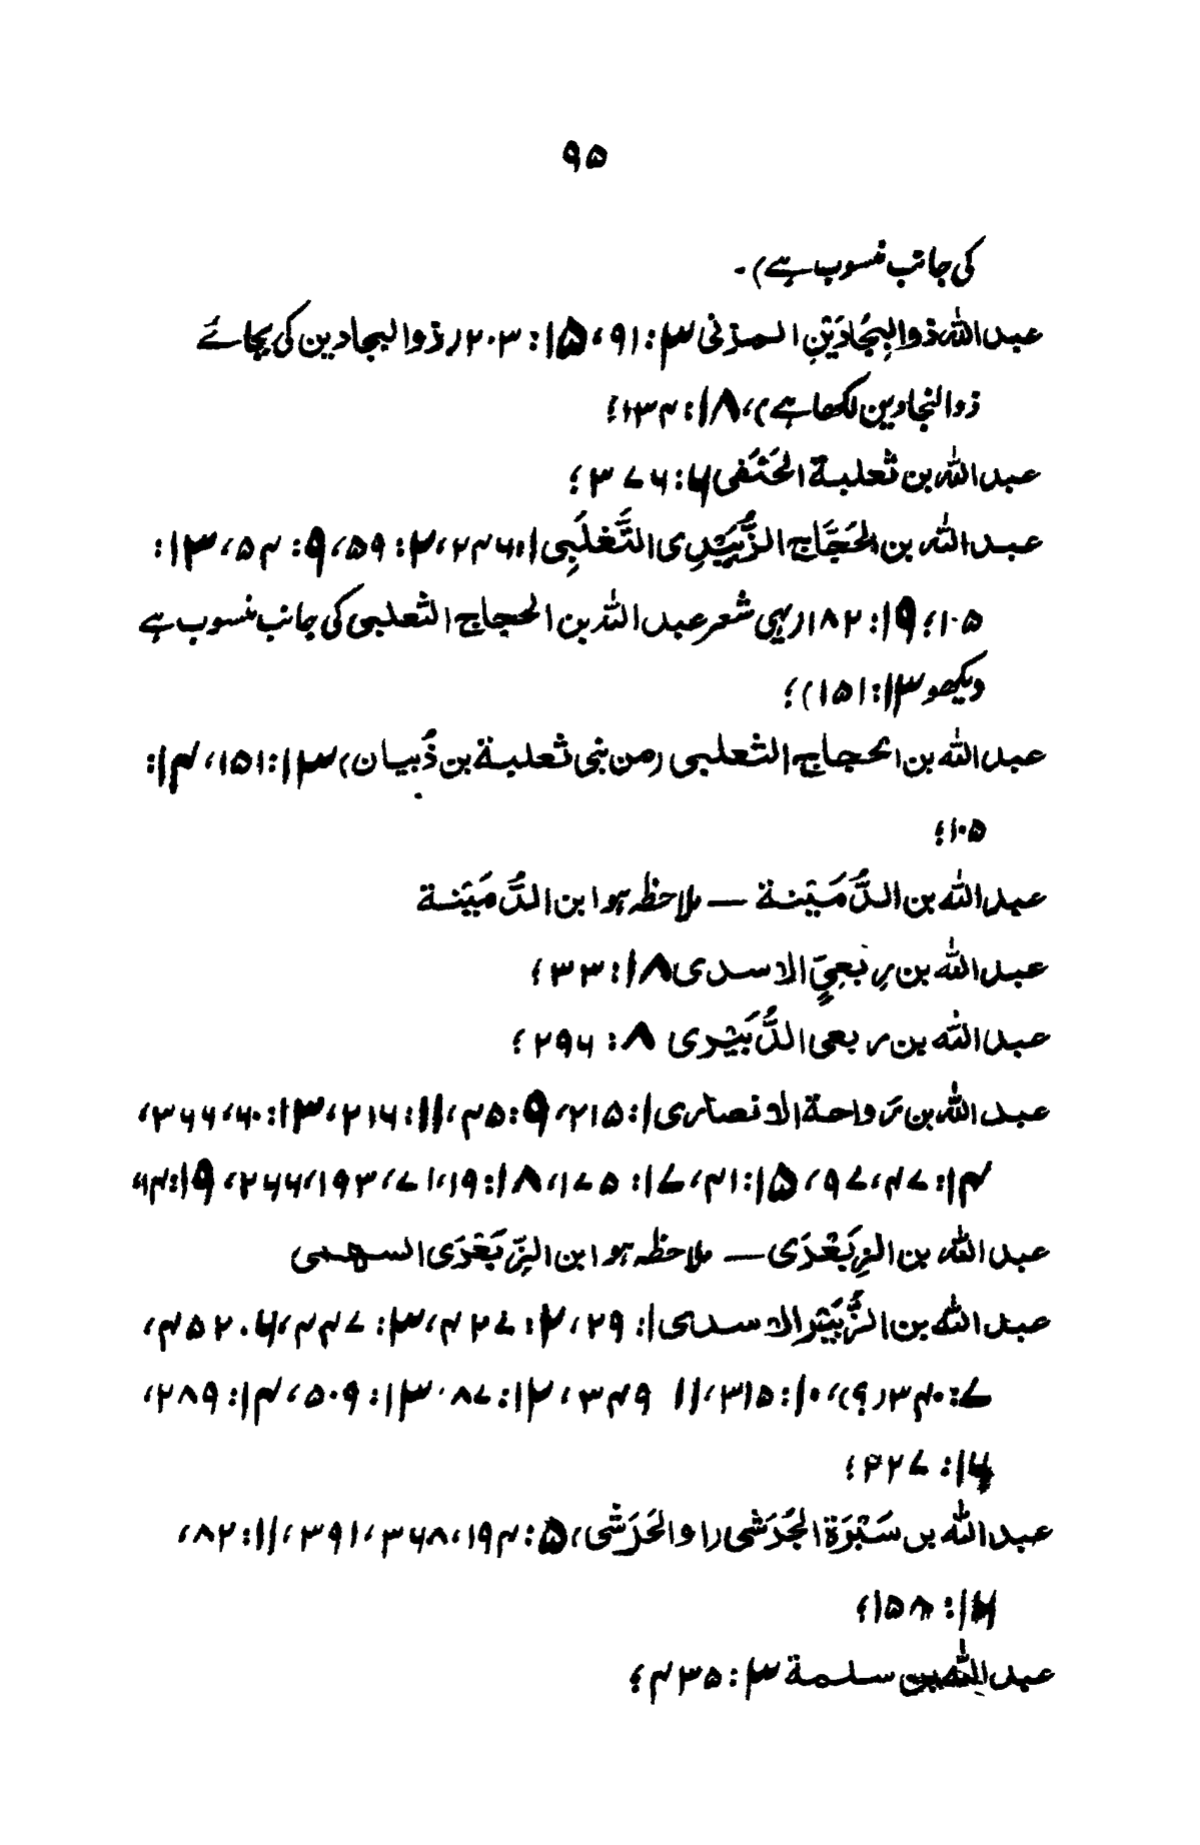 ۹۵
کی جانب منسوب ہے)۔
عبداللہ ذوالبِجَادَینِ المزنی ۳: ۹۱، ۱۵: ۲۰۳ (ذوالبجادین کی بجائے
ذوالنجادین لکھا ہے)، ۱۸: ۱۳۴؛
عبداللہ بن ثعلبة الحَنَفی ۶: ۳۷۶؛
عبداللہ بن الحَجَّاج الزُّبَیْدِی التَّغلَبِی ۱: ۲۴۶، ۲: ۵۹، ۹: ۵۴، ۱۳:
۱۰۵؛ ۱۹: ۱۸۲ (یہی شعر عبداللہ بن الحجاج الثعلبی کی جانب منسوب ہے
دیکھو ۱۳: ۱۵۱)؛
عبداللہ بن الحجاج الثعلبی (من بنی ثعلبة بن ذُبیان) ۱۳: ۱۵۱، ۱۴:
۱۰۵؛
عبداللہ بن الدُّمَیْنة — ملاحظہ ہو ابن الدُّمَیْنة
عبداللہ بن رِبْعِیٍّ الاسدی ۱۸: ۳۳؛
عبداللہ بن ربعی الدُّبَیْری ۸: ۲۹۶؛
عبداللہ بن رَواحة الانصاری ۱: ۲۱۵، ۹: ۴۵، ۱۱: ۲۱۶، ۱۳: ۶۰، ۳۶۶،
۱۴: ۴۷، ۹۷، ۱۵: ۴۱، ۱۷: ۱۷۵، ۱۸: ۱۹، ۷۱، ۱۹۳، ۲۶۶، ۱۹: ۶۴،
عبداللہ بن الزِبَعْرَی — ملاحظہ ہو ابن الزِّبَعْرَی السہمی
عبداللہ بن الزُّبَیْر الاسدی ۱: ۲۹، ۲: ۴۲۷، ۳: ۴۴۷، ۶: ۴۵۲،
۷: ۳۴۰ (؟)، ۱۰: ۳۱۵، ۱۱: ۳۴۹، ۱۲: ۸۷، ۱۳: ۵۰۹، ۱۴: ۲۸۹،
۱۶: ۴۲۷؛
عبداللہ بن سَبْرَة الجُرَشی (او الحَرَشی)، ۵: ۱۹۴، ۳۶۸، ۳۹۱، ۱۱: ۸۲،
۱۲: ۱۵۸؛
عبداللہ بن سلمة ۳: ۴۳۵؛